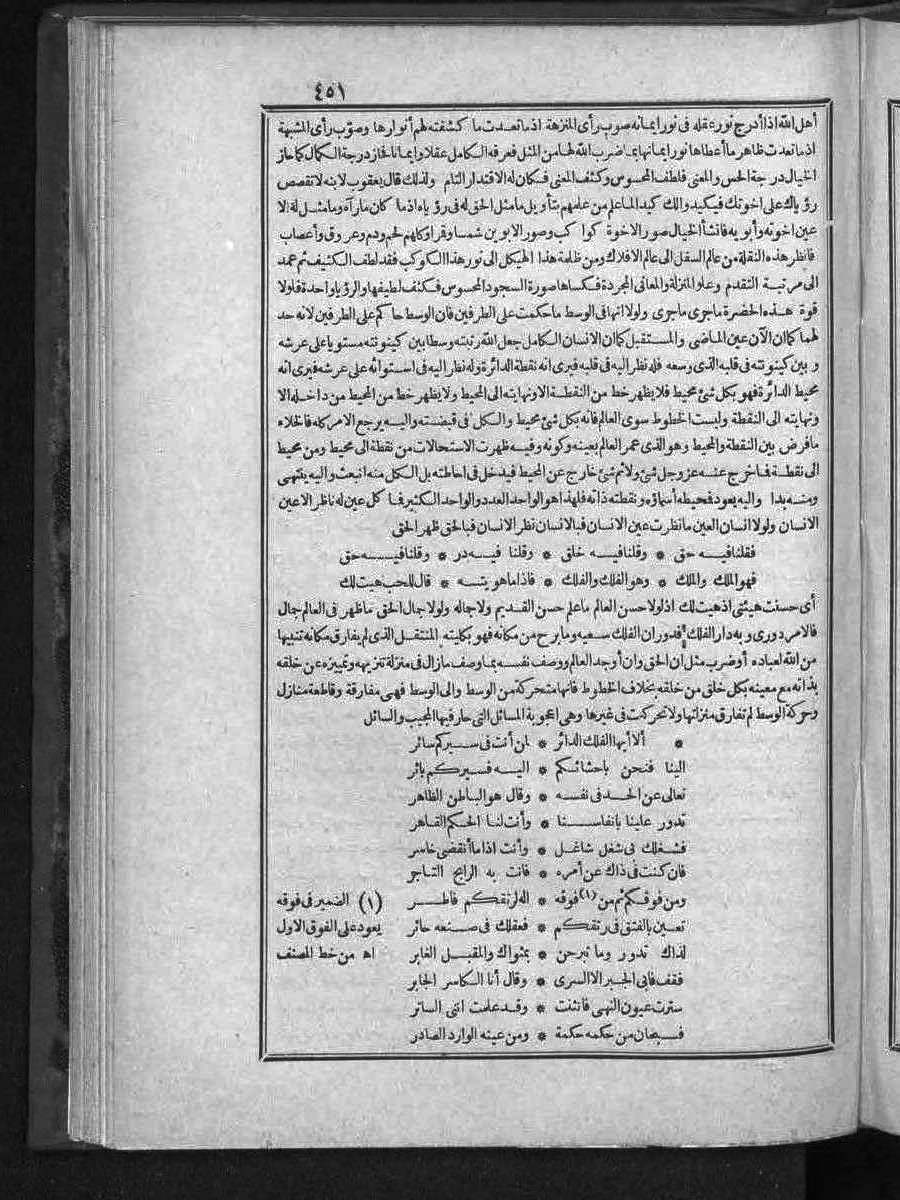 ٤٥١
أهل الله اذا أدرج نور عقله فى نور ايمانه صوب رأى المنزهة اذ ما تعدت ما كشفته لهم أنوارها وصوّب رأى المشبهة
اذ ما تعدت ظاهر ما أعطاها نور ايمانها بما ضرب الله لها من المثل فعرفه الكامل عقلا وايمانا فحاز درجة الكمال كما حاز
الخيال درجة الحس والمعنى فلطف المحسوس وكثف المعنى فكان له الاقتدار التام ولذلك قال يعقوب لابنه لا تقصص
رؤياك على اخوتك فيكيدوا لك كيدا لما علم من علمهم بتأويل ما مثل الحق له فى رؤياه اذ ما كان ما رآه وما مثل له الا
عين اخوته وأبويه فانشأ الخيال صور الاخوة كواكب وصور الابوين شمسا وقمرا وكلهم لحم ودم وعروق وأعصاب
فانظر هذه النقلة من عالم السفل الى عالم الافلاك ومن ظلمة هذا الهيكل الى نور هذا الكوكب فقد لطف الكثيف ثم عمد
الى مرتبة التقدم وعلو المنزلة والمعانى المجردة فكساها صورة السجود المحسوس فكثف لطيفها والرؤيا واحدة فلولا
قوة هذه الحضرة ما جرى ما جرى ولولا انها فى الوسط ما حكمت على الطرفين فان الوسط حاكم على الطرفين لانه حد
لهما كما ان الآن عين الماضى والمستقبل كما ان الانسان الكامل جعل الله رتبته وسطا بين كينونته مستويا على عرشه
وبين كينونته فى قلبه الذى وسعه فله نظر اليه فى قلبه فيرى انه نقطة الدائرة وله نظر اليه فى استوائه على عرشه فيرى انه
محيط الدائرة فهو بكل شئ محيط فلا يظهر خط من النقطة الا ونهايته الى المحيط ولا يظهر خط من المحيط من داخله الا
ونهايته الى النقطة وليست الخطوط سوى العالم فانه بكل شئ محيط والكل فى قبضته واليه يرجع الامر كله فالخلاء
ما فرض بين النقطة والمحيط وهو الذى عمر العالم بعينه وكونه وفيه ظهرت الاستحالات من نقطة الى محيط ومن محيط
الى نقطة فما خرج عنه عز وجل شئ ولا ثم شئ خارج عن المحيط فيدخل فى احاطته بل الكل منه انبعث واليه ينتهى
ومنه بدا واليه يعود فمحيطه أسماؤه ونقطته ذاته فلهذا هو الواحد العدد والواحد الكثير فما كل عين له ناظر الا عين
الانسان ولولا انسان العين ما نظرت عين الانسان فبالانسان نظر الانسان فبالحق ظهر الحق
فقلنا فيه حق * وقلنا فيه خلق * وقلنا فيه در * وقلنا فيه حق
فهو الملك والملك * وهو الفلك والفلك * فاذا ما هويته * قال للحب هيت لك
أى حسنت هيئتى اذ هيت لك اذ لولا حسن العالم ما علم حسن القديم ولا جماله ولولا جمال الحق ما ظهر فى العالم جمال
فالامر دورى وبه دار الفلك فدوران الفلك سعيه وما برح من مكانه فهو بكليته المنتقل الذى لم يفارق مكانه تنبيها
من الله لعباده أو ضرب مثل ان الحق وان أوجد العالم ووصف نفسه بما وصف ما زال فى منزلة تنزيهه وتميزه عن خلقه
بذاته مع معيته بكل خلق من خلقه بخلاف الخطوط فانها متحركة من الوسط والى الوسط فهى مفارقة وقاطعة منازل
وحركة الوسط لم تفارق منزلتها ولا تحركت فى غيرها وهى اعجوبة المسائل التى حار فيها المجيب والسائل
* ألا أيها الفلك الدائر * لمن أنت فى سيركم سائر
الينا فنحن باحشائكم * اليه فسيركم بائر
تعالى عن الحد فى نفسه * وقال هو الباطن الظاهر
تدور علينا بانفاسنا * وأنت لنا الحكم القاهر
فشغلك فى شغل شاغل * وأنت اذا ما انقضى خاسر
فان كنت فى ذاك عن أمره * فانت به الرابح التاجر
ومن فوقكم ثم من (١) فوقه * اله لرتقكم فاطر
(١) الضمير فى فوقه
تعين بالفتق فى رتقكم * فعقلك فى صنعه حائر
يعود على الفوق الاول
لذاك تدور وما تبرحن * بمثواك والمقبل الغابر
اه من خط المصنف
فقف فابى الجبر الا السرى * وقال أنا الكاسر الجابر
سترت عيون النهى فانثنت * وقد علمت اننى الساتر
فسبحان من حكمه حكمة * ومن عينه الوارد الصادر